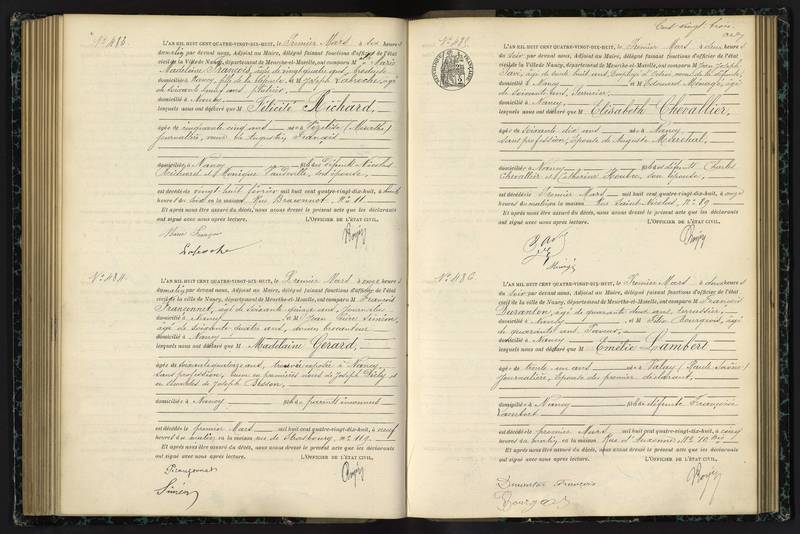 N° 483.
L'AN MIL HUIT CENT QUATRE-VINGT-DIX-HUIT, le Premier Mars à dix heures
du matin par devant nous, Adjoint au Maire, délégué faisant fonctions d'officier de l'état
civil de la Ville de Nancy, département de Meurthe-et-Moselle, ont comparu M Marie
Madeleine François, âgée de vingt quatre ans,
domiciliée à Nancy, fille de la défunte et M Joseph Laroche, âgé
de soixante ans,
domicilié à Nancy
lesquels nous ont déclaré que M Félicité Richard,
âgée de cinquante cinq ans née à Vézelise (Meurthe)
journalière, veuve de Augustin François
domiciliée à Nancy fille des défunts Nicolas
Richard et Monique Vautrelle, son épouse,
est décédée vingt huit février mil huit cent quatre-vingt-dix-huit, à
heures du soir en la maison Rue Braconnot, N° 11
Et après nous être assuré du décès, nous avons dressé le présent acte que les déclarants
ont signé avec nous après lecture. L'OFFICIER DE L'ÉTAT CIVIL,
Marie François
Laroche
N° 484.
L'AN MIL HUIT CENT QUATRE-VINGT-DIX-HUIT, le Premier Mars à onze heures
du matin par devant nous, Adjoint au Maire, délégué faisant fonctions d'officier de l'état
civil de la ville de Nancy, département de Meurthe-et-Moselle, ont comparu M François
Françonnet, âgé de soixante quinze ans, journalier
domicilié à Nancy et M Jean Pierre Siméon,
âgé de soixante quatre ans, ancien brocanteur
domicilié à Nancy
lesquels nous ont déclaré que M Madelaine Gérard,
âgée de soixante quatorze ans, née à Nancy
sans profession, veuve en premières noces de Joseph et
en secondes de Joseph Besson,
domiciliée à Nancy fille de parents inconnus
est décédée premier Mars mil huit cent quatre-vingt-dix-huit, à neuf
heures du matin en la maison rue de Strasbourg, N° 119
Et après nous être assuré du décès, nous avons dressé le présent acte que les déclarants
ont signé avec nous après lecture. L'OFFICIER DE L'ÉTAT CIVIL,
Siméon
Cent vingt trois.
N° 485.
L'AN MIL HUIT CENT QUATRE-VINGT-DIX-HUIT, le Premier Mars à deux heures
du soir par devant nous, Adjoint au Maire, délégué faisant fonctions d'officier de l'état
civil de la Ville de Nancy, département de Meurthe-et-Moselle, ont comparu M Jean Joseph
âgé de trente huit ans, Employé d'octroi, neveu de la défunte,
domicilié à Nancy et M Edouard Ménagé, âgé
de soixante ans,
domicilié à Nancy,
lesquels nous ont déclaré que M Elisabeth Chevallier,
âgée de soixante dix ans née à Nancy
sans profession, épouse de Auguste Maréchal,
domiciliée à Nancy fille des défunts Charles
Chevallier et Catherine son épouse,
est décédée Premier Mars mil huit cent quatre-vingt-dix-huit, à onze
heures du matin en la maison Rue Saint-Nicolas, N° 19
Et après nous être assuré du décès, nous avons dressé le présent acte que les déclarants
ont signé avec nous après lecture. L'OFFICIER DE L'ÉTAT CIVIL,
N° 486.
L'AN MIL HUIT CENT QUATRE-VINGT-DIX-HUIT, le Premier Mars à deux heures
du soir par devant nous, Adjoint au Maire, délégué faisant fonctions d'officier de l'état
civil de la ville de Nancy, département de Meurthe-et-Moselle, ont comparu M François
Duranton, âgé de quarante deux ans, terrassier,
domicilié à Nancy et M Félix Bourgeois, âgé
de quarante ans,
domicilié à Nancy
lesquels nous ont déclaré que M Emélie Lambert
âgée de trente un ans née à Valay (Haute Saône)
journalière, épouse du premier déclarant,
domiciliée à Nancy fille de défunte Françoise
Lambert
est décédée premier Mars mil huit cent quatre-vingt-dix-huit, à cinq
heures du matin en la maison Rue d'Auxonne N° 10 bis
Et après nous être assuré du décès, nous avons dressé le présent acte que les déclarants
ont signé avec nous après lecture. L'OFFICIER DE L'ÉTAT CIVIL,
Duranton François